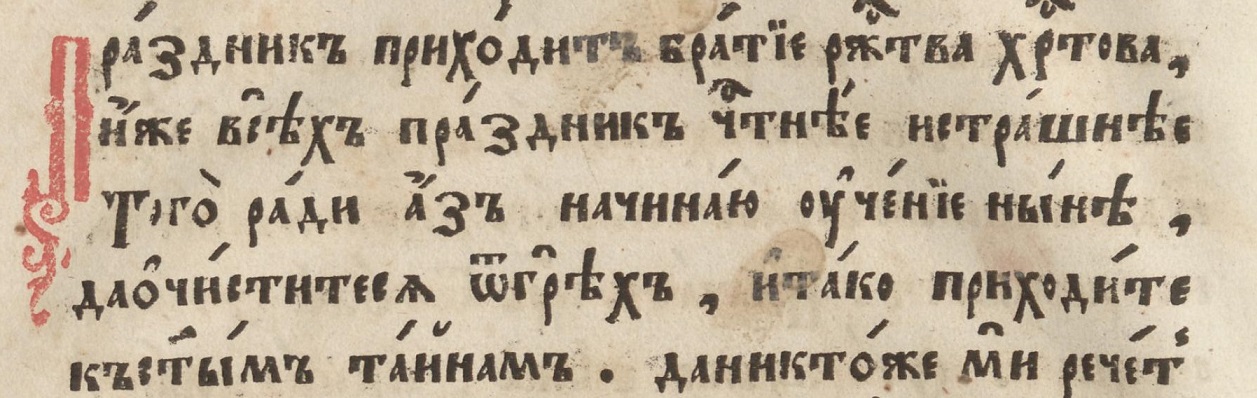 Пра́здникъ прихо́дитъ бра́тїе ржⷭ҇тва хрⷭ҇това,
и҆́же всѣ́хъ пра́здникъ чⷭ҇тнѣ́е истра́шнѣе
Того̀ ра́ди а҆́зъ начина́ю оу҆че́нїе ны́нѣ,
дао҆чи́ститеся ѿгрѣ́хъ, и҆та́ко приходи́те
късⷮы́мъ та́йнамъ. даникто́же мⷩ҇и рече́тъ